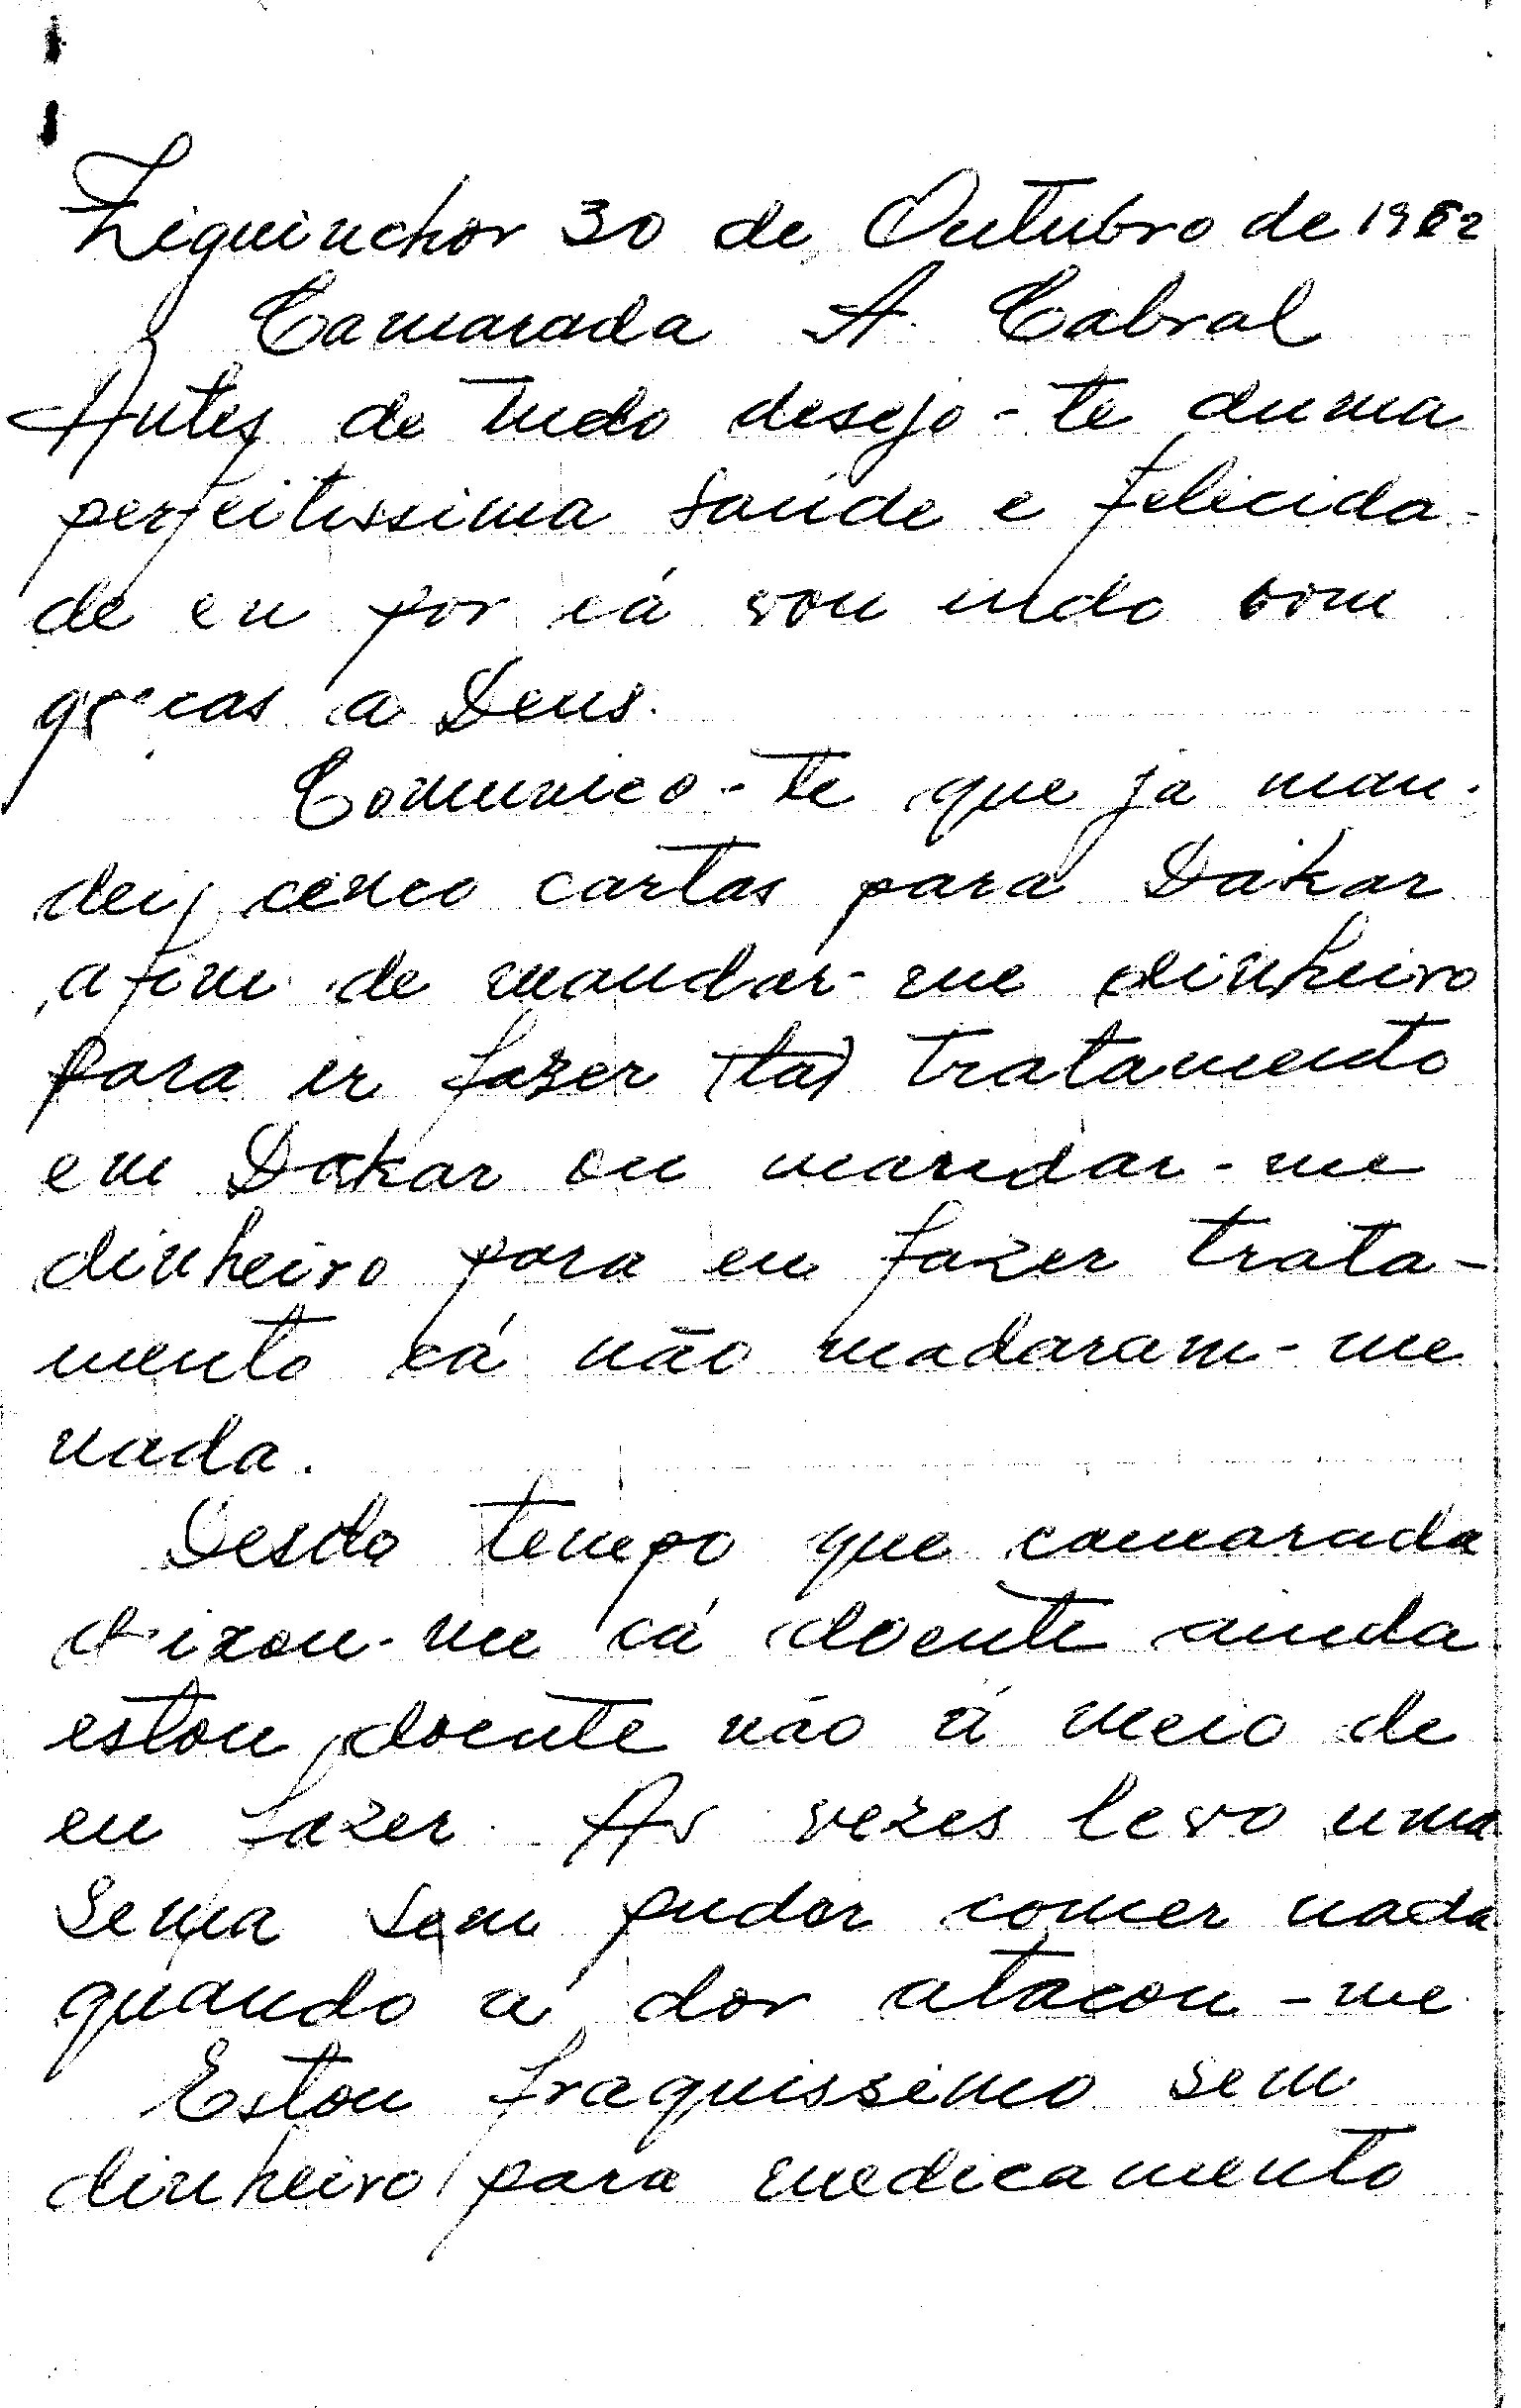 Ziguinchor 30 de Outubro de 1962
Camarada A. Cabral
Antes de tudo desejo-te duma
perfeitissima saúde e felicida-
de eu por cá vou indo bom
gracas a Deus.
Comunico-te que ja man-
dei cinco cartas para Dakar
afim de mandar-me dinheiro
para ir fazer (ta) tratamento
em Dakar ou mandar-me
dinheiro para eu fazer trata-
mento cá não madaram-me
nada.
Desde tempo que camarada
deixou-me cá doente ainda
estou doente não á meio de
eu fazer. As vezes levo uma
sema sem puder comer nada
quando a dor atacou-me
Estou fraquissimo sem
dinheiro para medicamento